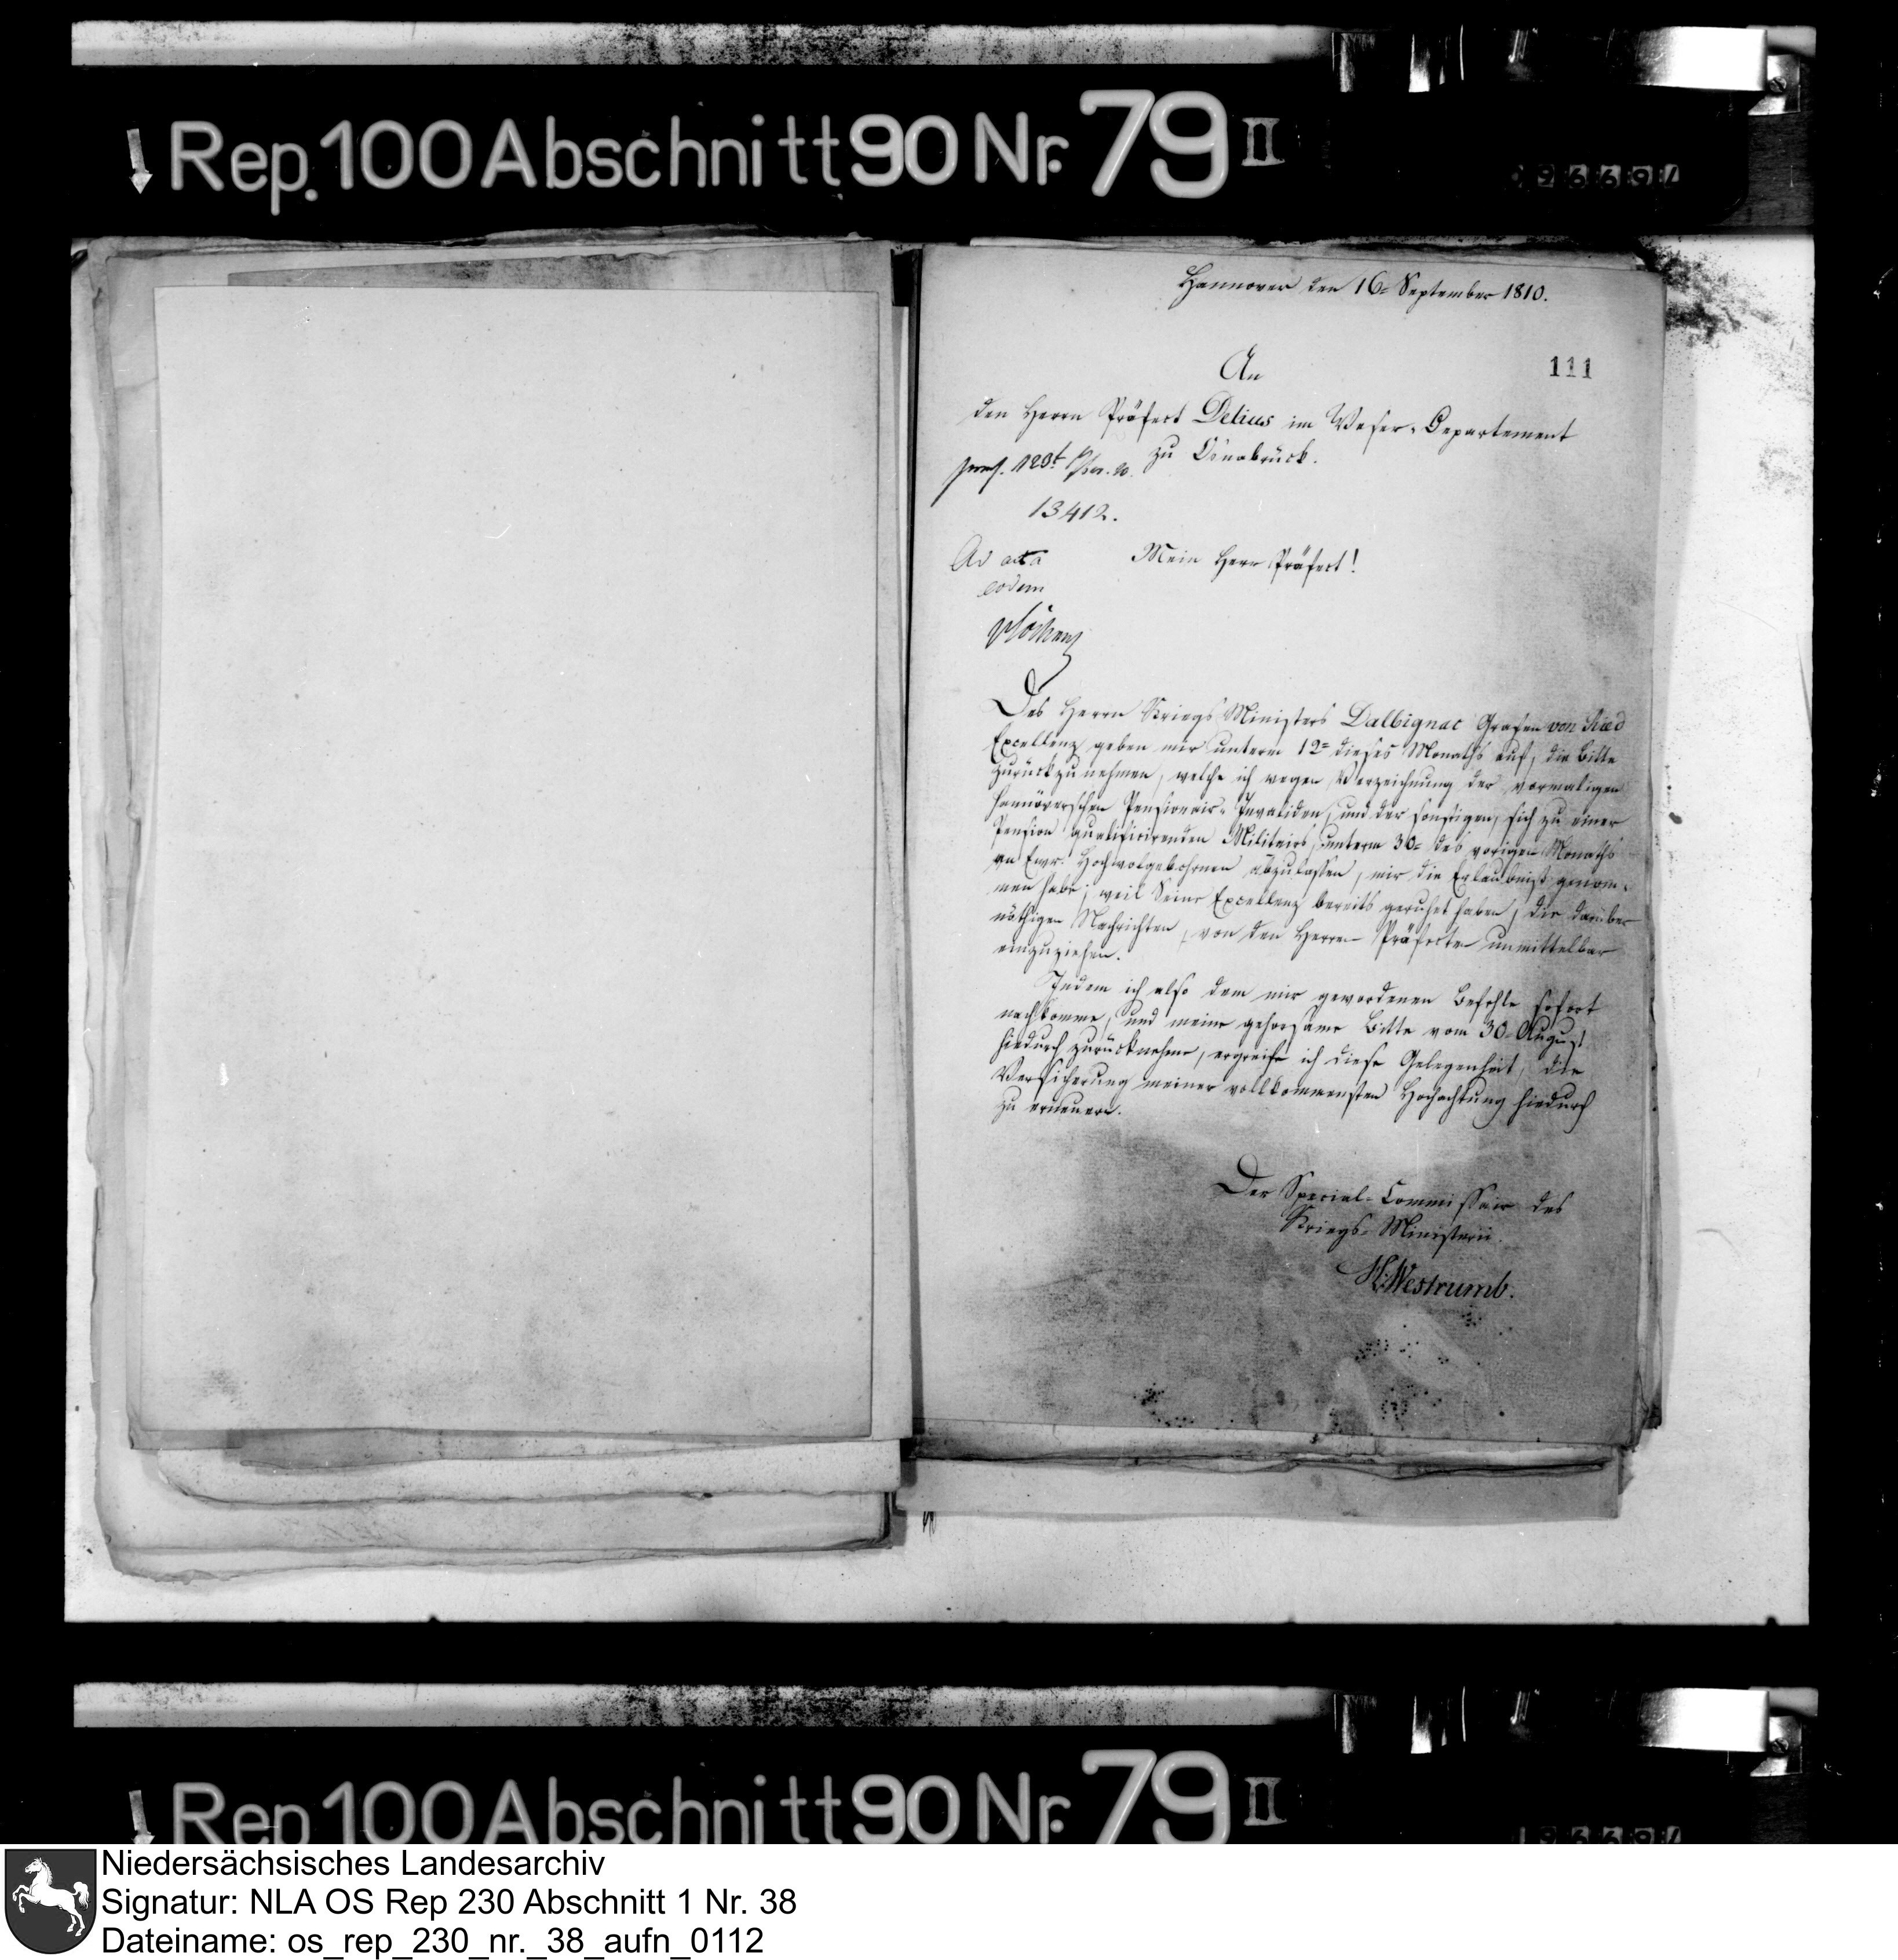 Rep. 100 Abschnitt 90 Nr. 79 II
Hannover den 16= September 1810.
111
An
den Herrn Präfect Delius im Weser-Departement
zu Osnabrück.
13412.
Ad acta
eodem
Mein Herr Präfect!
Des Herrn Kriegs Ministers Dalbignac Grafen von Ried
Excellenz geben mir unterm 12= dieses Monaths auf, die Bitte
zurückzunehmen, welche ich wegen Verzeichnung der vormaligen
hannöverschen Pensionair-Invaliden, und der sonstigen, sich zu einer
Pension qualificirenden Militairs, unterm 30= des vorigen Monaths
an Ewr. Hochwolgebohrnen abzulassen, mir die Erlaubniß genom-
men habe; weil Seine Excellenz bereits geruhet haben, die darüber
nöthigen Nachrichten, von den Herren Präfecten unmittelbar
einzuziehen.
Indem ich also dem mir gewordenen Befehle sofort
nachkomme, und meine gehorsame Bitte vom 30= August
hiedurch zurücknehme, ergreife ich diese Gelegenheit, die
Versicherung meiner vollkommensten Hochachtung hiedurch
zu erneuern.
Der Special-Commissair des
Kriegs-Ministerii.
Westrumb.
Rep 100 Abschnitt 90 Nr. 79 II
Niedersächsisches Landesarchiv
Signatur: NLA OS Rep 230 Abschnitt 1 Nr. 38
Dateiname: os_rep_230_nr._38_aufn_0112